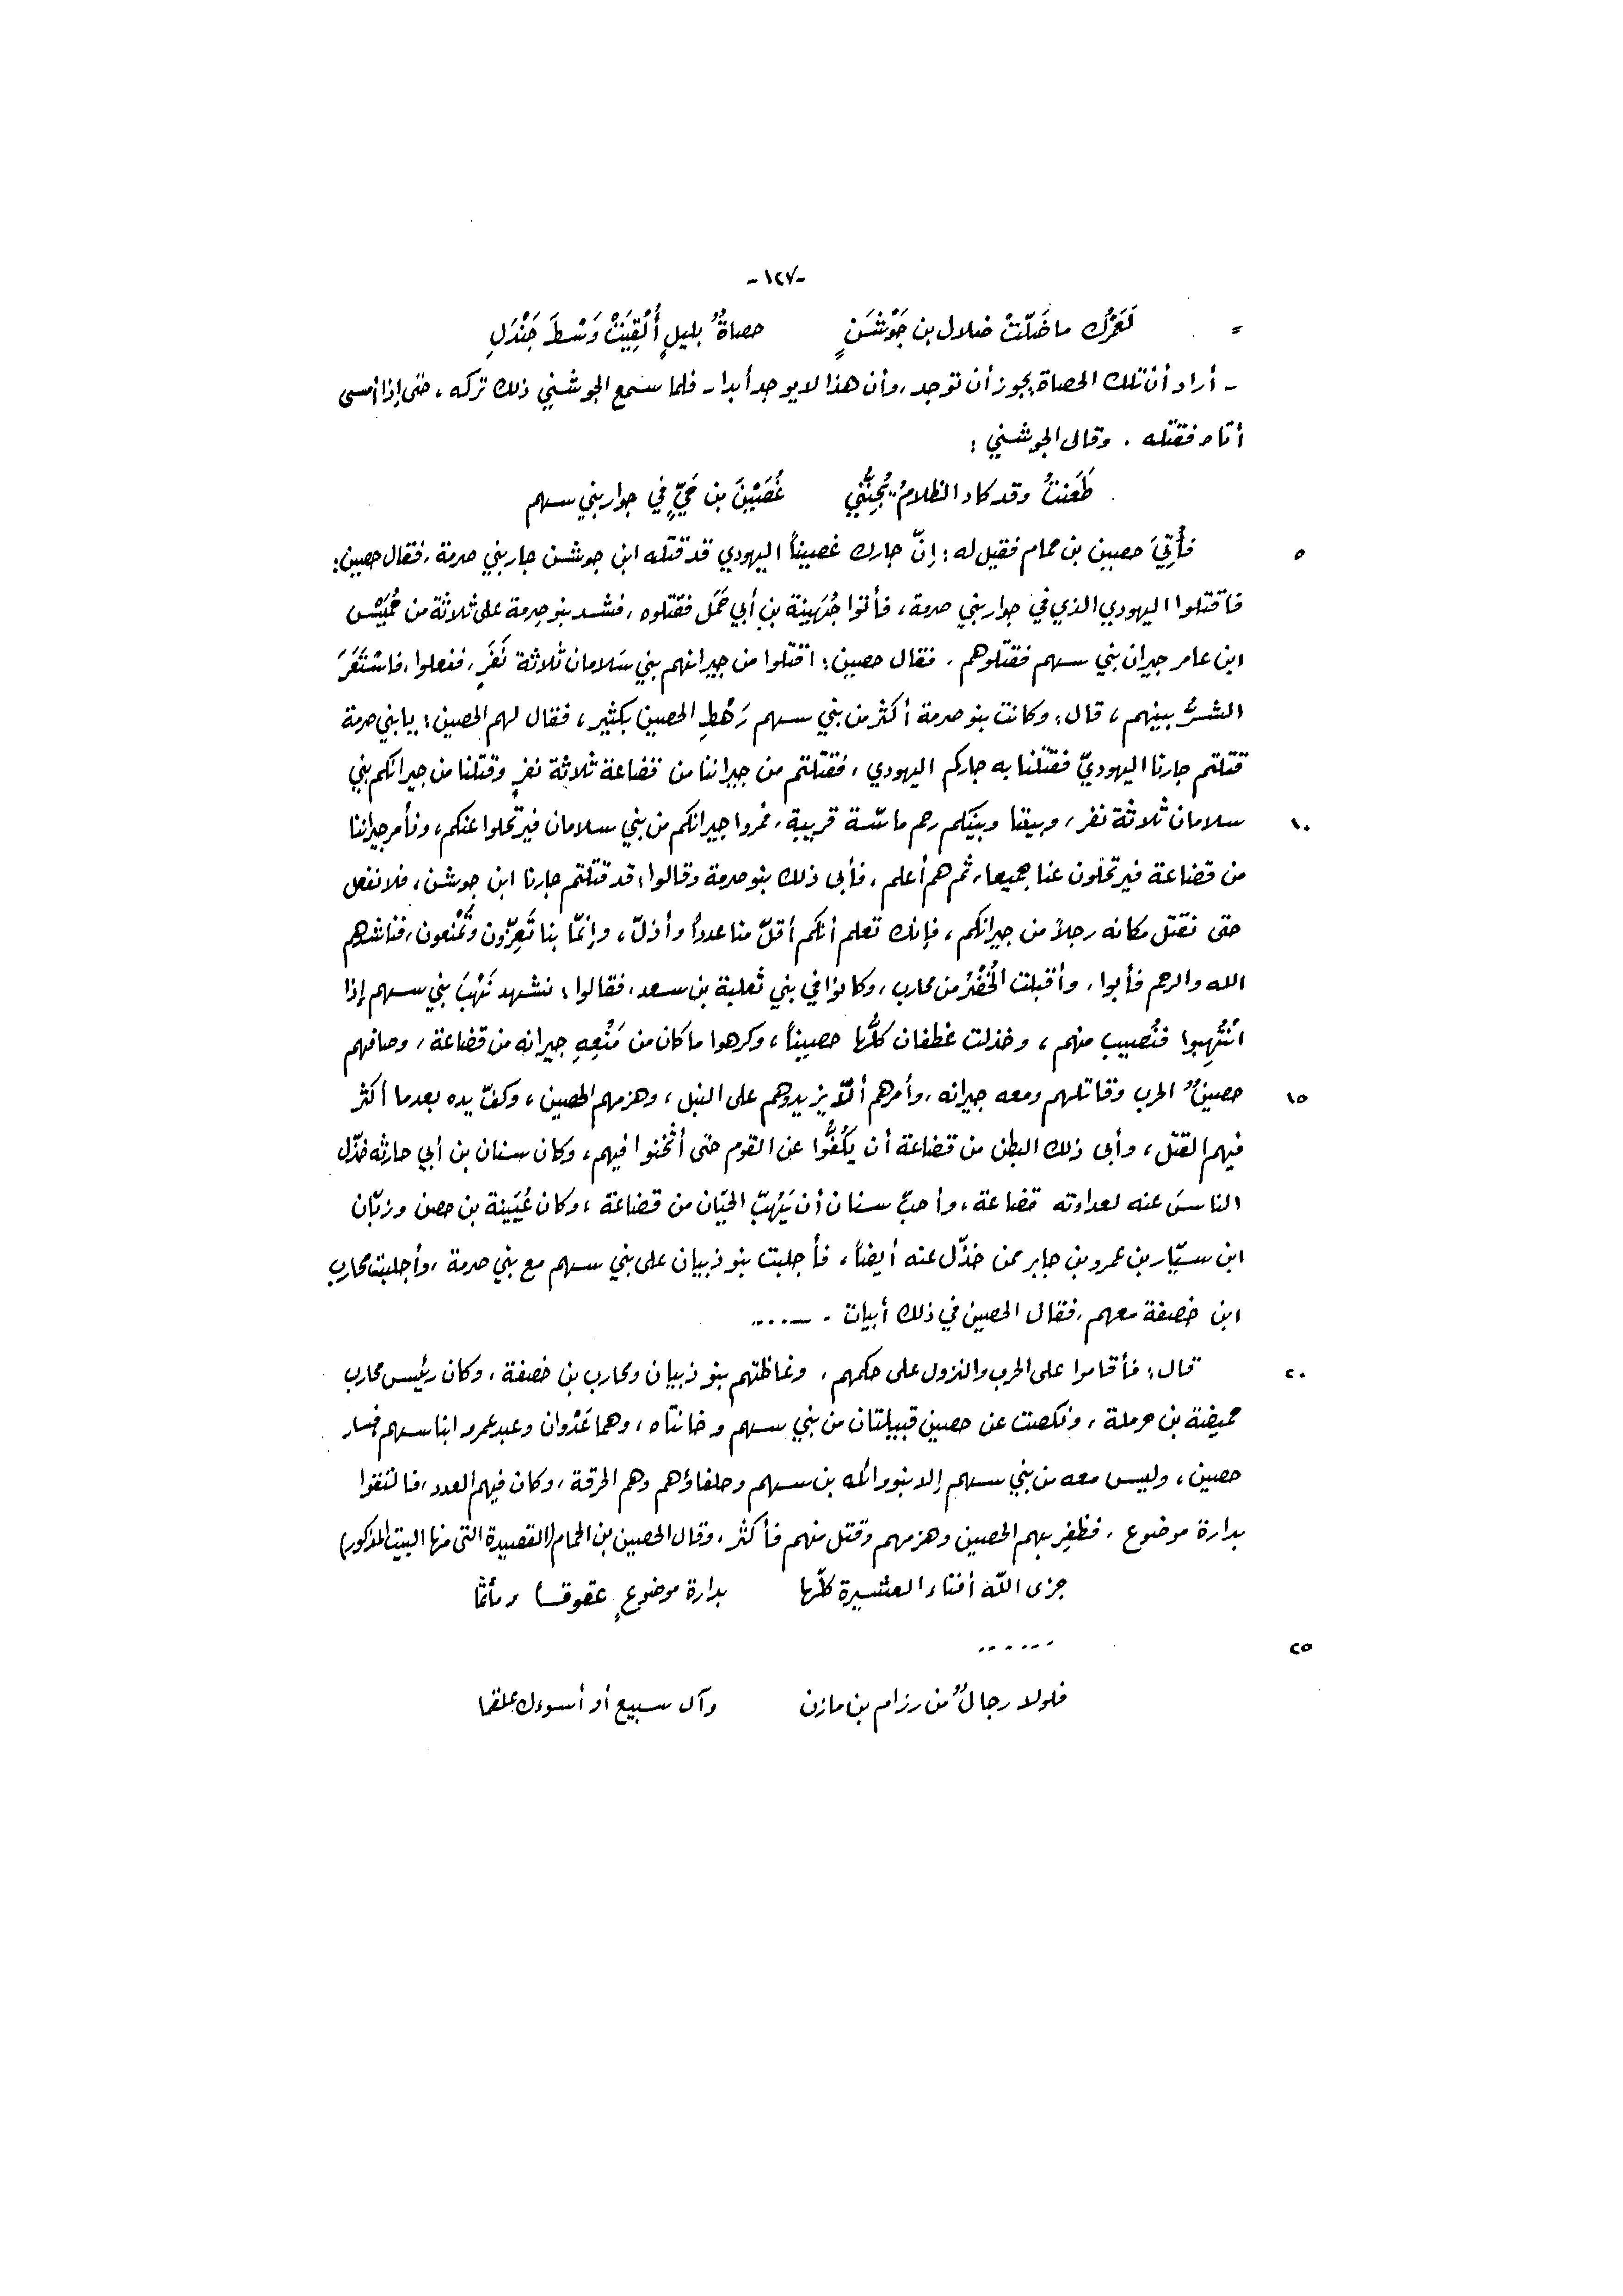 -١٢٧-
= لَعَمْرُك ما ضَلّتْ ضلال بن جَوْشَنٍ حصاةٌ بليلٍ أُلْقِيَتْ وَسْطَ جَنْدَلِ
- أراد أن تلك الحصاة يجوز أن توجد، وأن هذا لا يوجد أبداً - فلما سمع الجوشني ذلك تركه، حتى إذا أمسى
أتاه فقتله. وقال الجوشني:
طَعَنتُ وقد كاد الظلامُ يُجِنُّني غُصَيْنَ بن حَيٍّ في جوار بني سهم
٥ فأُتِيَ حصين بن حمام فقيل له: إنّ جارك غصيناً اليهودي قد قتله ابن جوشن جار بني صرمة، فقال حصين:
فاقتلوا اليهودي الذي في جوار بني صرمة، فأتوا جُهَينة بن أبي حَمَل فقتلوه، فشد بنو صرمة على ثلاثة من حُمَيْس
ابن عامر جيران بني سهم فقتلوهم، فقال حصين: اقتلوا من جيرانهم بني سَلامان ثلاثة نَفَرٍ، ففعلوا، فاستَعَرَ
الشرُّ بينهم، قال: وكانت بنو صرمة أكثر من بني سهم رَهْطِ الحصين بكثير، فقال لهم الحصين: يا بني صرمة
قتلتم جارنا اليهوديّ فقتلنا به جاركم اليهودي، فقتلتم من جيراننا من قضاعة ثلاثة نفرٍ وقتلنا من جيرانكم بني
١٠ سلامان ثلاثة نفر، وبيننا وبينكم رحم ماسّة قريبة، فمروا جيرانكم من بني سلامان فيرتحلوا عنكم، ونأمر جيراننا
من قضاعة فيرتحلون عنا جميعا، ثم هم أعلم، فأبى ذلك بنو صرمة وقالوا: قد قتلتم جارنا ابن جوشن، فلا نفعل
حتى نقتل مكانه رجلاً من جيرانكم، فإنك تعلم أنكم أقلّ منا عدداً وأذلّ، وإنّما بنا تَعِزّون وتُمْنعون، فناشدهم
الله والرحم فأبوا، وأقبلت الخُضْرُ من محارب، وكانوا في بني ثعلبة بن سعد، فقالوا: نشهد نَهْبَ بني سهم إذا
انْتُهِبوا فنُصيب منهم، وخذلت غطفان كلُّها حصيناً، وكرهوا ما كان من مَنْعِهِ جيرانه من قضاعة، وصافهم
١٥ حصينٌ الحرب وقاتلهم ومعه جيرانه، وأمرهم ألّا يزيدوهم على النبل، وهزمهم الحصين، وكفّ يده بعدما أكثر
فيهم القتل، وأبى ذلك البطن من قضاعة أن يكُفُّوا عن القوم حتى أثْخنوا فيهم، وكان سنان بن أبي حارثه خذّل
الناسَ عنه لعداوته قضاعة، وأحبّ سنان أن يَنْهب الحيّان من قضاعة، وكان عُيَينة بن حصن وزبّان
ابن سيّار بن عمرو بن جابر ممن خذّل عنه أيضاً، فأجلبت بنو ذبيان على بني سهم مع بني صرمة، وأجلبت محارب
ابن خصفة معهم، فقال الحصين في ذلك أبيات .......
٢٠ قال: فأقاموا على الحرب والنزول على حكمهم، وغاظتهم بنو ذبيان ومحارب بن خصفة، وكان رئيس محارب
حميضة بن حرملة، ونكصت عن حصين قبيلتان من بني سهم وخانتاه، وهما عَدْوان وعبد عمرو ابنا سهم فسار
حصين، وليس معه من بني سهم إلا بنو وائله بن سهم وحلفاؤهم وهم الحرقة، وكان فيهم العدد، فالتقوا
بدارة موضوع، فظفر بهم الحصين وهزمهم وقتل منهم فأكثر، وقال الحصين بن الحمام (القصيدة التي منها البيت المذكور)
جزى اللّه أفناء العشيرة كلّها بدارة موضوعٍ عقوقاً ومأثما
٢٥ ......
فلولا رجالٌ من رزام بن مازن وآل سبيع أو أسوءك علقما